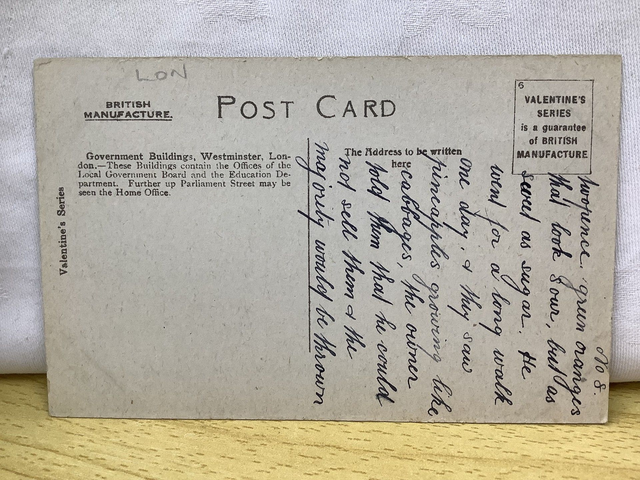 LON
BRITISH
MANUFACTURE.
POST CARD
6
VALENTINE'S
SERIES
is a guarantee
of BRITISH
MANUFACTURE
Government Buildings, Westminster, Lon-
don.—These Buildings contain the Offices of the
Local Government Board and the Education De-
partment. Further up Parliament Street may be
seen the Home Office.
Valentine's Series
The Address to be written
here
No 8.
green oranges
that look sour, but as
sweet as sugar. He
went for a long walk
one day, & they saw
pineapples growing like
cabbages, the owner
told them that he could
not sell them & the
majority would be thrown